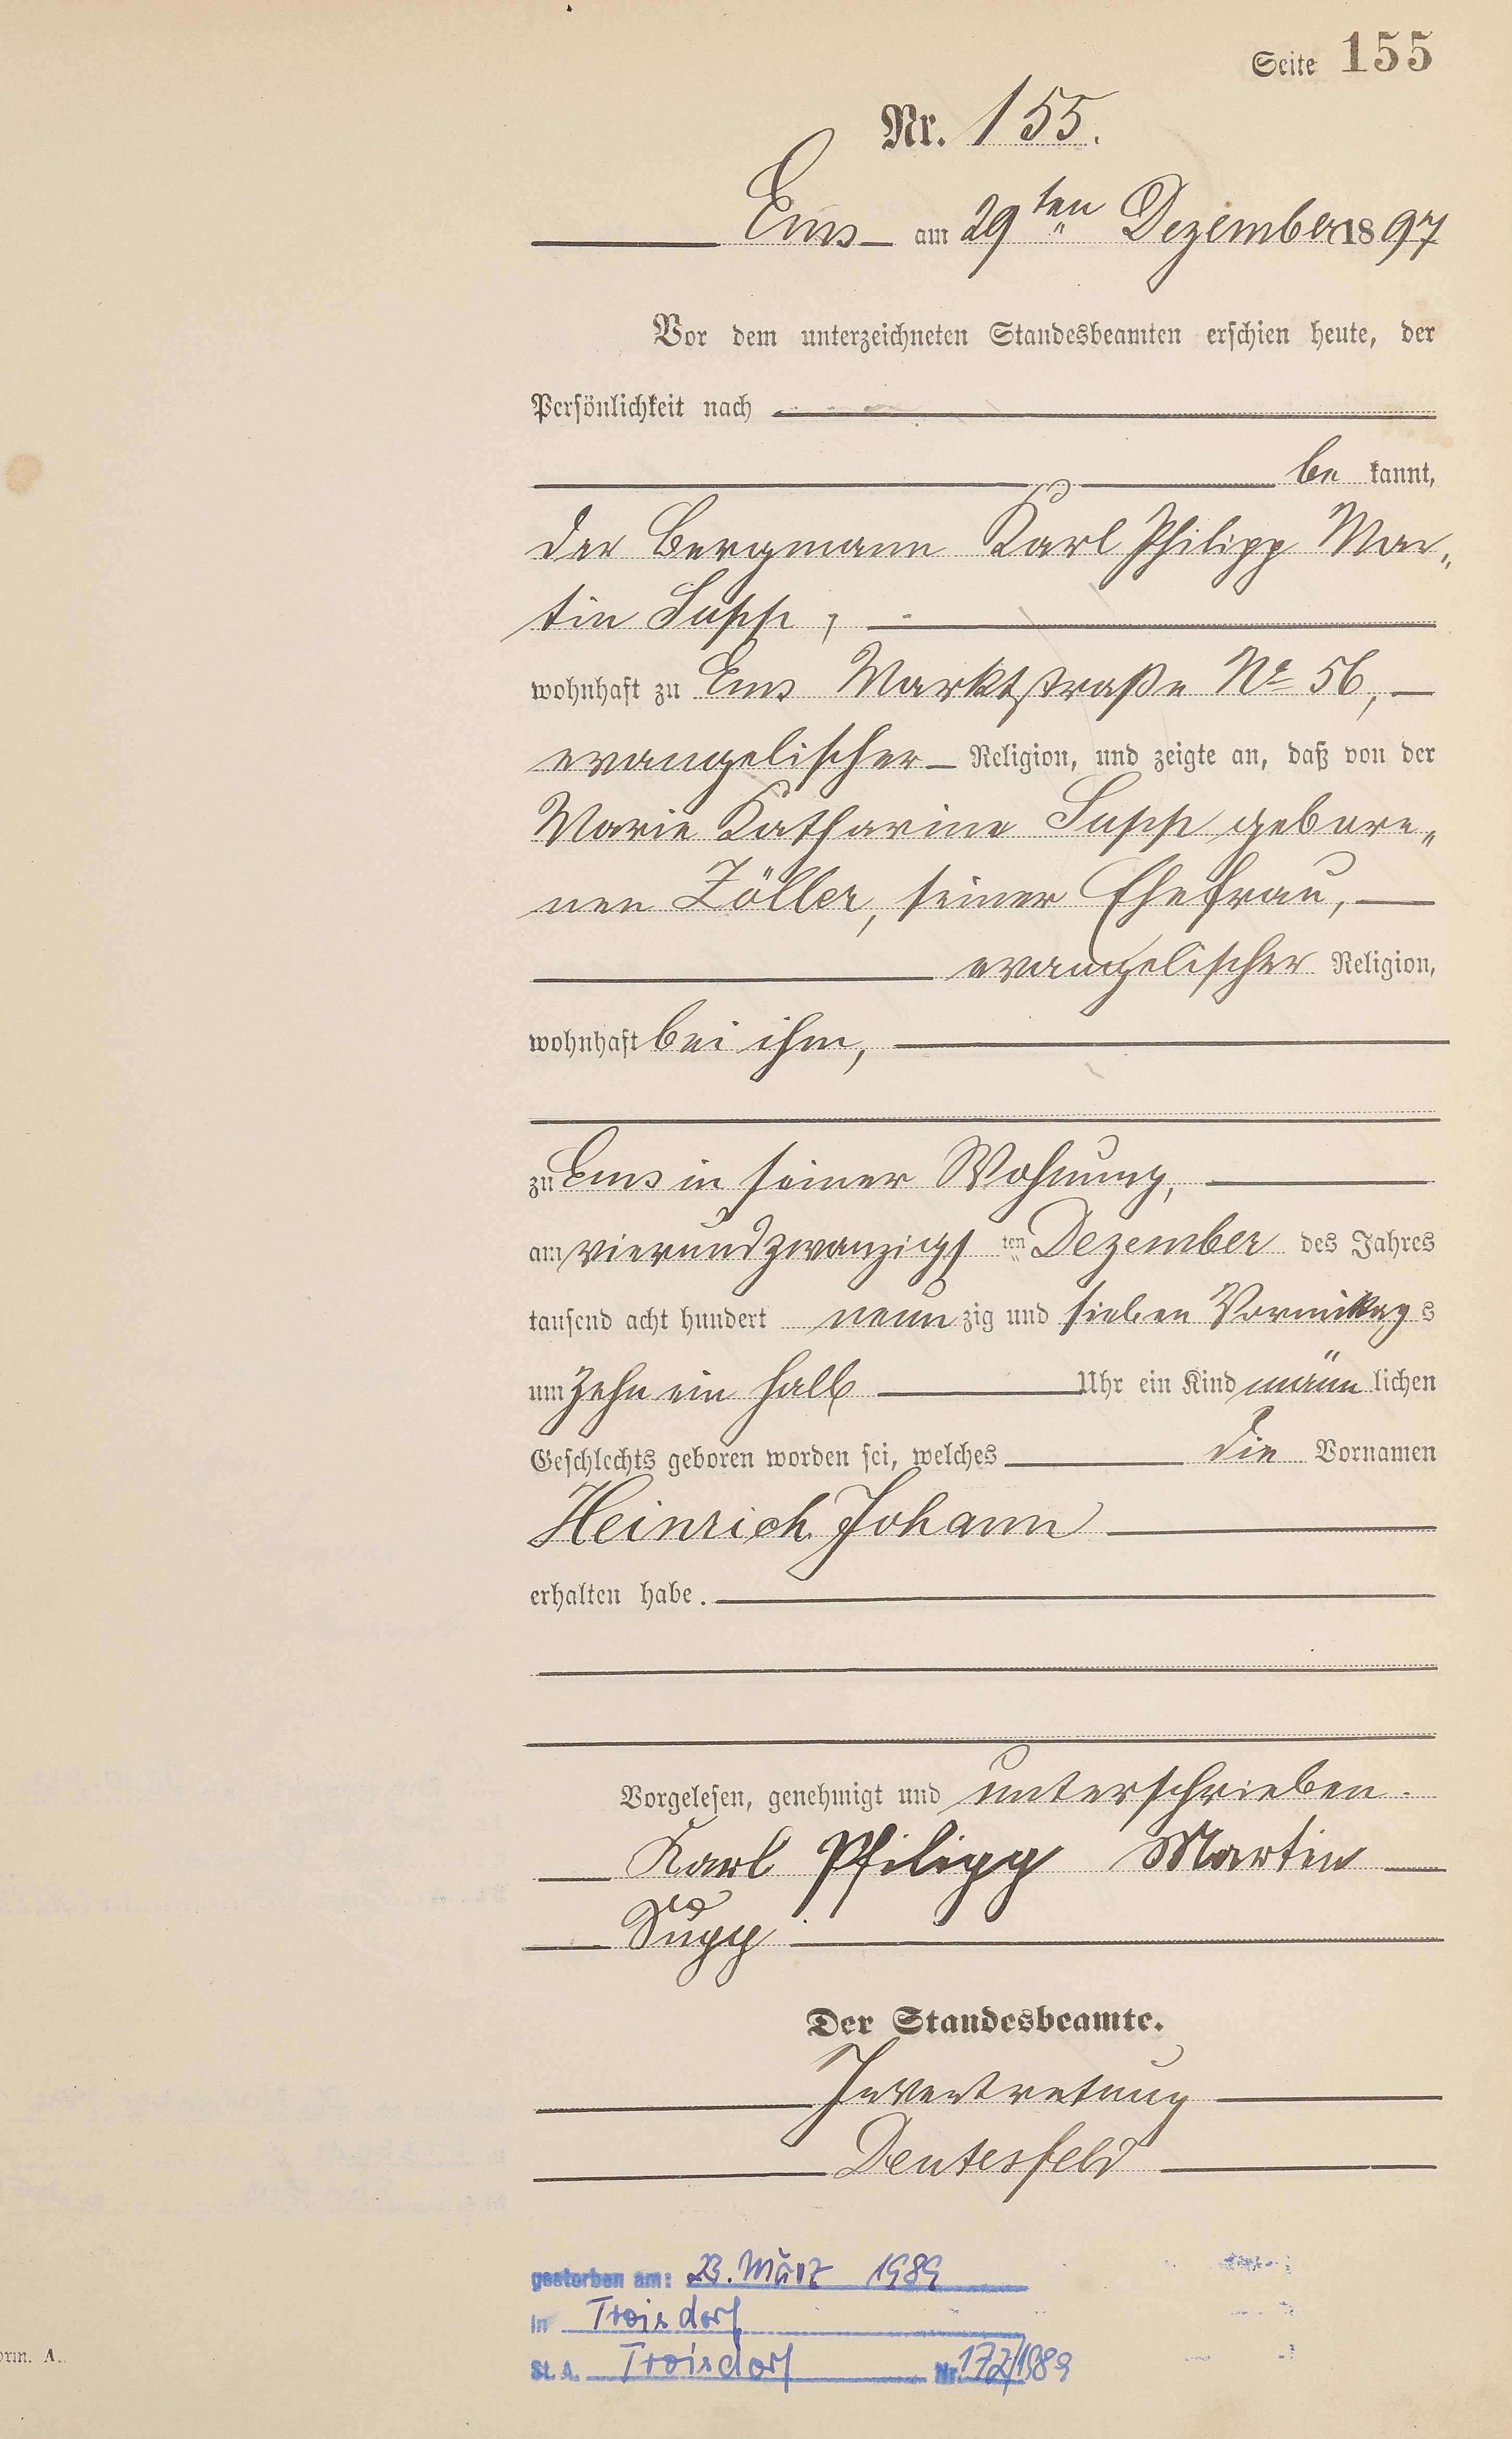 Seite 155
Nr. 155.
Ems am 29ten Dezember 1897
Vor dem unterzeichneten Standesbeamten erschien heute, der
Persönlichkeit nach
be kannt,
der Bergmann Karl Philipp Mar„
tin Supp,
wohnhaft zu Ems Marktstraße No 56,
evangelischer Religion, und zeigte an, daß von der
Marie Katharine Supp gebore„
nen Zöller, seiner Ehefrau,
evangelischer Religion,
wohnhaft bei ihm,
zu Ems in seiner Wohnung,
am vierundzwanzigs ten Dezember des Jahres
tausend acht hundert neun zig und sieben Vormittag s
um zehn ein halb Uhr ein Kind männ lichen
Geschlechts geboren worden sei, welches die Vornamen
Heinrich Johann
erhalten habe.
Vorgelesen, genehmigt und unterschrieben.
Karl Philipp Martin
Supp
Der Standesbeamte.
In Vertretung
Deutesfeld
gestorben am: 23. März 1989
in Troisdorf
St. A. Troisdorf Nr. 172/1989
orm. A.